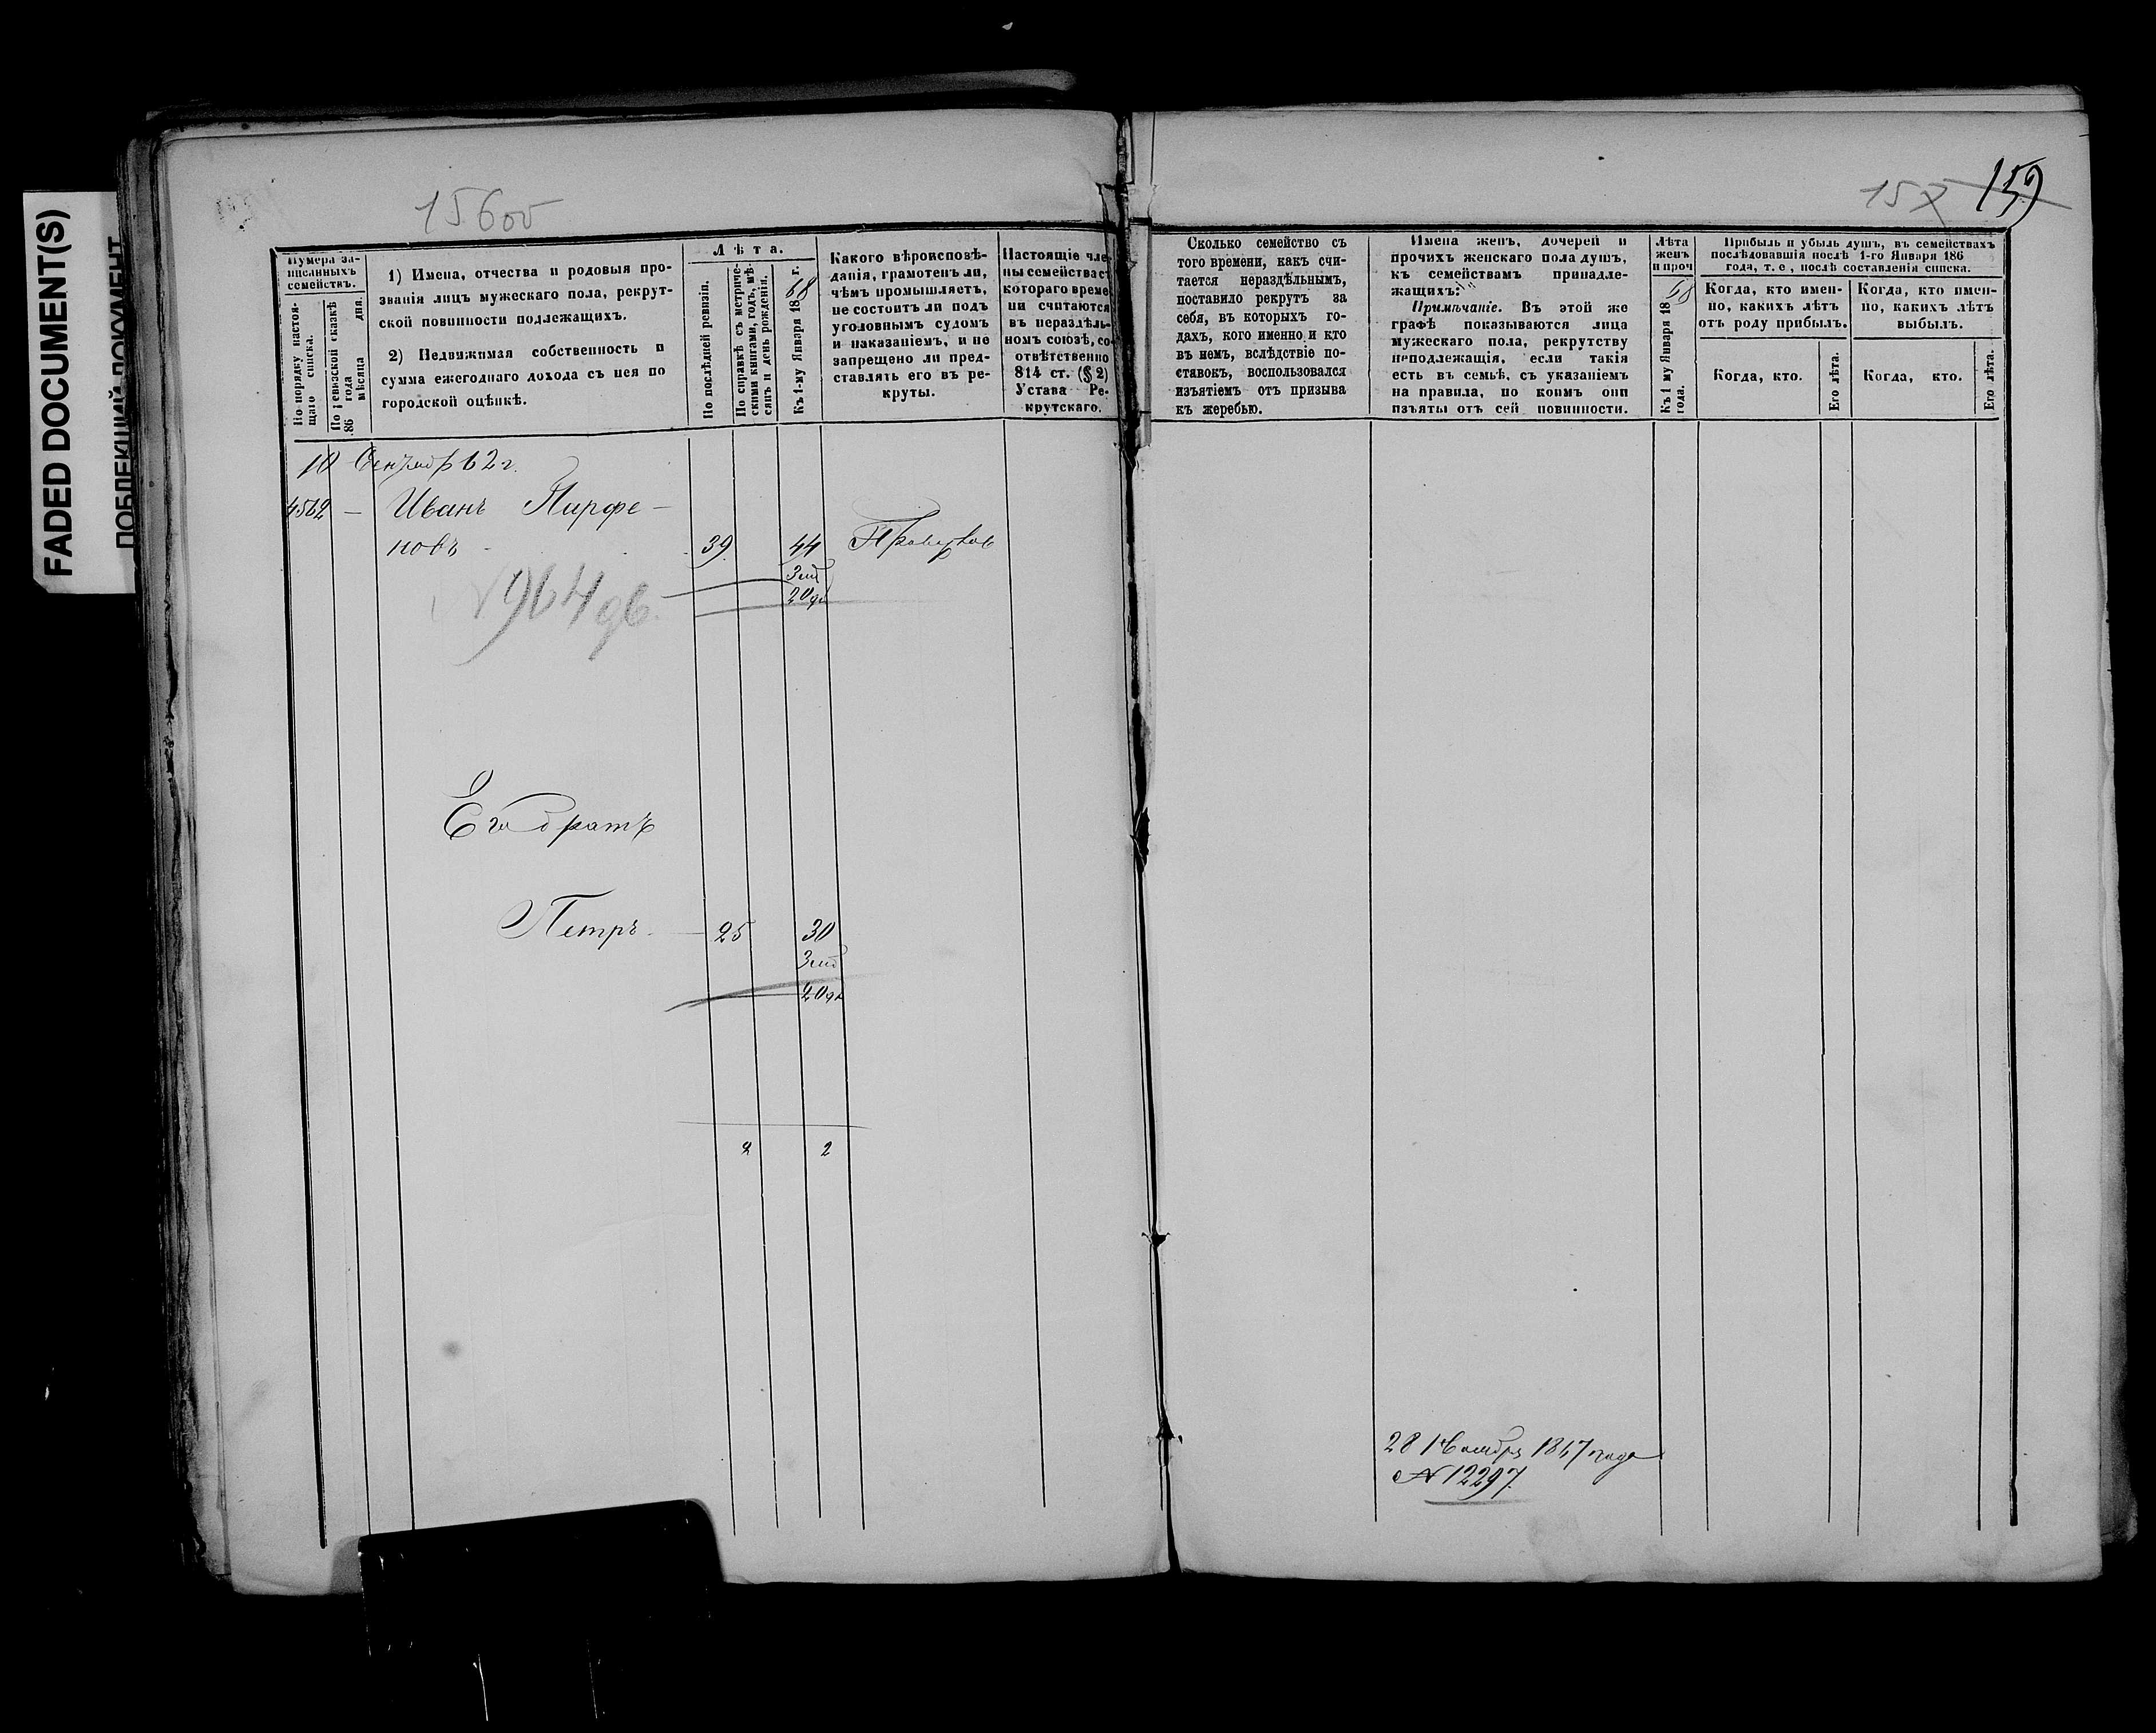 FADED DOCUMENT(S)
156об
157
159
Нумера за-
писанныхъ
семействъ.
По порядку настоя-
щаго списка.
По ревизской сказкѣ
186 года
мѣсяца дня.
1) Имена, отчества и родовыя про-
званія лицъ мужескаго пола, рекрут-
ской повинности подлежащихъ.
2) Недвижимая собственность и
сумма ежегоднаго дохода съ нея по
городской оцѣнкѣ.
Лѣта.
По послѣдней ревизіи.
По справкѣ съ метриче-
скими книгами, годъ, мѣ-
сяцъ и день рожденія.
Къ 1-му Января 1868 г.
Какого вѣроисповѣ-
данія, грамотенъ ли,
чѣмъ промышляетъ,
не состоитъ ли подъ
уголовнымъ судомъ
и наказаніемъ, и не
запрещено ли пред-
ставлять его въ ре-
круты.
Настоящіе чле-
ны семейства съ
котораго време-
ни считаются
въ нераздѣль-
номъ союзѣ, со-
отвѣтственно
814 ст. (§ 2)
Устава Ре-
крутскаго.
Сколько семейство съ
того времени, какъ счи-
тается нераздѣльнымъ,
поставило рекрутъ за
себя, въ которыхъ го-
дахъ, кого именно и кто
въ немъ, вслѣдствіе по-
ставокъ, воспользовался
изъятіемъ отъ призыва
къ жеребью.
Имена женъ, дочерей и
прочихъ женскаго пола душъ,
къ семействамъ принадле-
жащихъ.
Примѣчаніе. Въ этой же
графѣ показываются лица
мужескаго пола, рекрутству
неподлежащія, если такія
есть въ семьѣ, съ указаніемъ
на правила, по коимъ они
изъяты отъ сей повинности.
Лѣта
женъ
и проч
Къ 1 му Января 1868
года.
Прибыль и убыль душъ, въ семействахъ
послѣдовавшія послѣ 1-го Января 186
года, т. е, послѣ составленія списка.
Когда, кто имен-
но, какихъ лѣтъ
отъ роду прибылъ.
Когда, кто имен-
но, какихъ лѣтъ
выбылъ.
Когда, кто.
Его лѣта.
Когда, кто.
Его лѣта.
10 62 г.
4562 — Иванъ Парфе-
новъ 39 44
N 964
Его братъ
Петръ 25 30
2 2
28 Ноября 1867 года
N 12297.